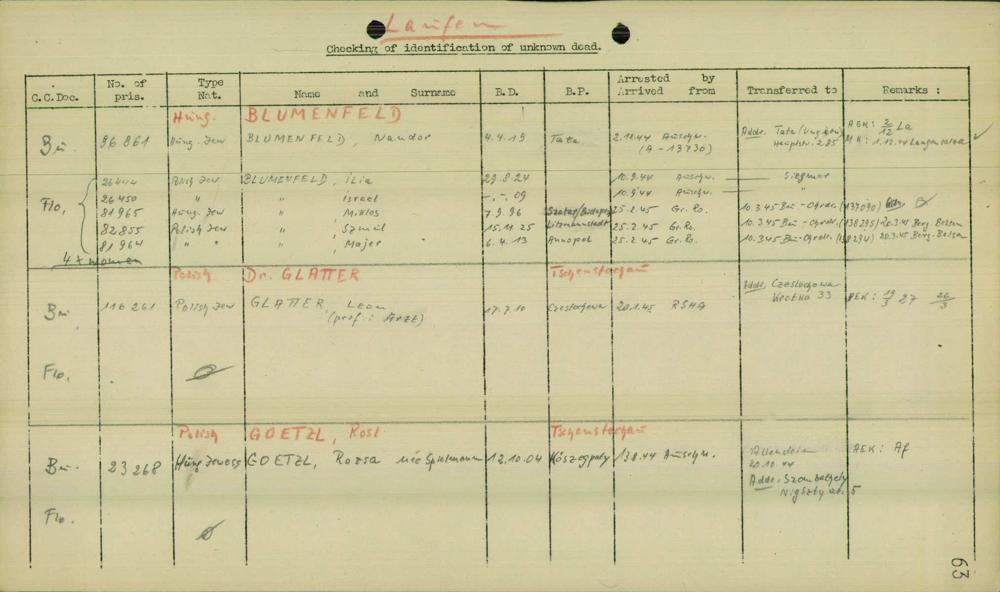 Laufen
Checking of identification of unknown dead.
C.C.Doc. No. of pris. Type Nat. Name and Surname B.D. B.P. Arrested by Arrived from Transferred to Remarks :
Hung. BLUMENFELD
Bu. 96 861 Hung. Jew BLUMENFELD, Nandor 4.4.19 Tata 2.11.44 Auschw. (A-13730) Addr. Tata (Ungarn) 285 AEK: 2/12 La
MK: 1.12.44 Langensalza
Flo, 26444 Polish Jew BLUMENFELD, Ilia 29.8.24 10.9.44 Auschw. Siegmar
26450 " " , Israel -.-.09 10.9.44 Auschw. "
81965 Hung. Jew " , Miklos 7.9.96 25.2.45 Gr.Ro. 10.3.45 Bu-Ohrdr. (137090)
82855 Polish Jew " , Szmul 15.11.25 Litzmannstadt 25.2.45 Gr.Ro. 10.3.45 Bu-Ohrdr. (138295) 20.3.45 Berg.-Belsen
81964 " " " , Majer 6.4.13 Annopol 25.2.45 Gr.Ro. 10.3.45 Bu-Ohrdr. (138294) 20.3.45 Berg-Belsen
4 x women
Polish Dr. GLATTER Tschenstochau
Bu. 116261 Polish Jew GLATTER, Leon 17.7.10 Czestochowa 20.1.45 RSHA Addr. Czestochowa
(prof.: Arzt) Krotka 33 AEK: 19/3 27 26/3
Flo. ø
Polish GOETZL, Rosl Tschenstochau
Bu. 23268 Hung. Jewess GOETZL, Rossa née Spielmann 12.10.04 Köszegpaty 13.8.44 Auschw. Allendorf AEK: Af
20.10.44
Addr. Szombathely
5
Flo. ø
63